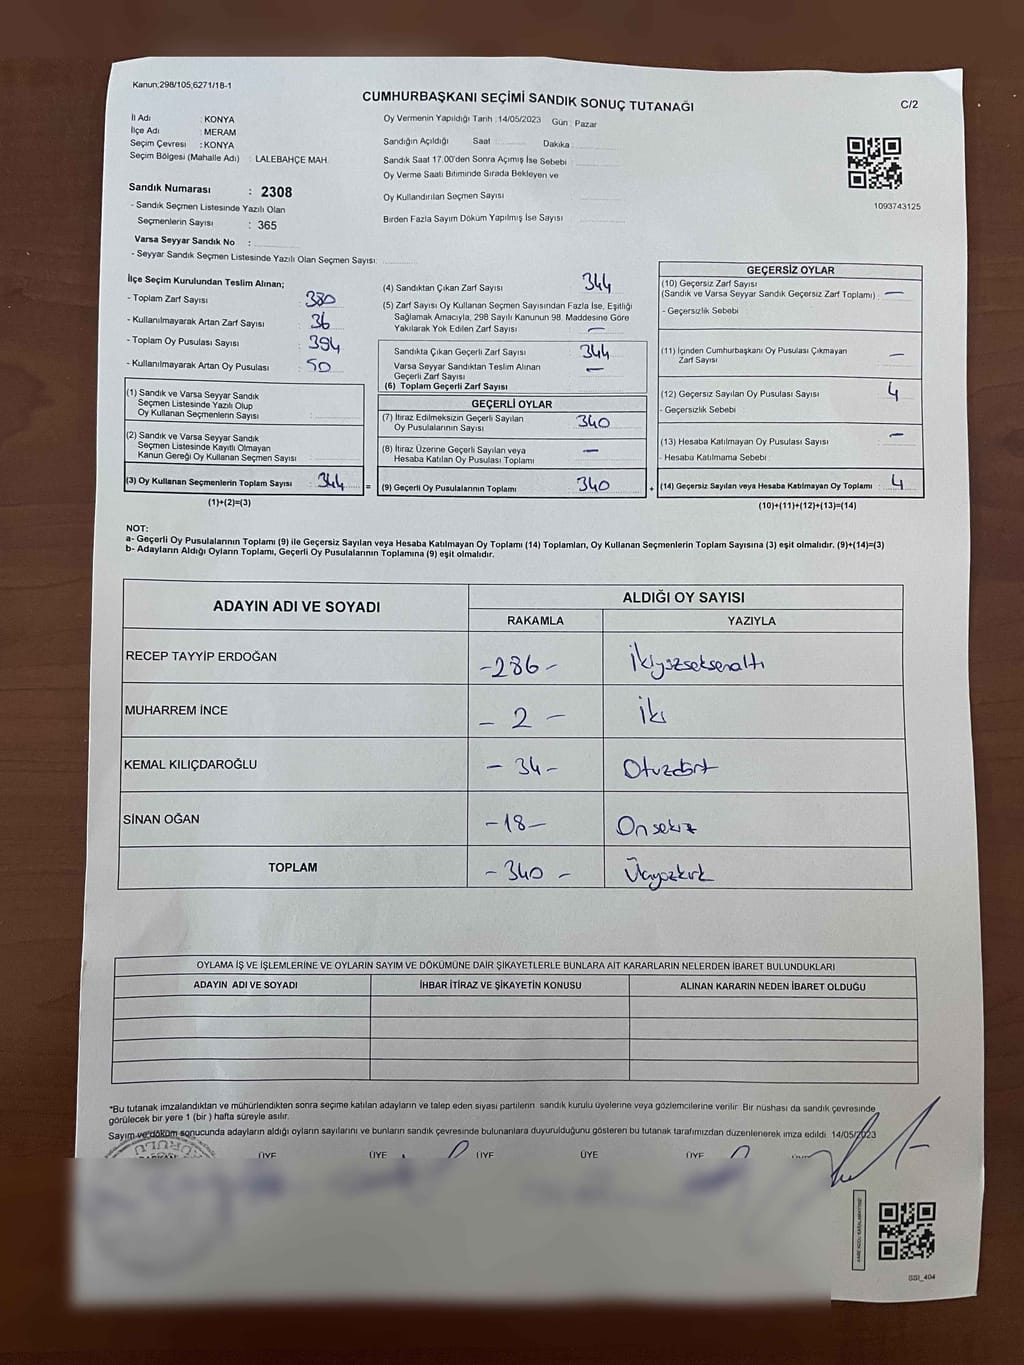 Kanun;298/105;6271/18-1
CUMHURBAŞKANI SEÇİMİ SANDIK SONUÇ TUTANAĞI
C/2
İl Adı : KONYA
İlçe Adı : MERAM
Seçim Çevresi : KONYA
Seçim Bölgesi (Mahalle Adı) : LALEBAHÇE MAH.
Sandık Numarası : 2308
- Sandık Seçmen Listesinde Yazılı Olan
Seçmenlerin Sayısı : 365
Varsa Seyyar Sandık No :
- Seyyar Sandık Seçmen Listesinde Yazılı Olan Seçmen Sayısı:
Oy Vermenin Yapıldığı Tarih :14/05/2023 Gün : Pazar
Sandığın Açıldığı Saat : Dakika :
Sandık Saat 17.00'den Sonra Açımış İse Sebebi :
Oy Verme Saati Bitiminde Sırada Bekleyen ve
Oy Kullandırılan Seçmen Sayısı
Birden Fazla Sayım Döküm Yapılmış İse Sayısı :
1093743125
İlçe Seçim Kurulundan Teslim Alınan;
- Toplam Zarf Sayısı : 380
- Kullanılmayarak Artan Zarf Sayısı : 36
- Toplam Oy Pusulası Sayısı : 394
- Kullanılmayarak Artan Oy Pusulası : 50
(1) Sandık ve Varsa Seyyar Sandık
Seçmen Listesinde Yazılı Olup
Oy Kullanan Seçmenlerin Sayısı :
(2) Sandık ve Varsa Seyyar Sandık
Seçmen Listesinde Kayıtlı Olmayan
Kanun Gereği Oy Kullanan Seçmen Sayısı :
(3) Oy Kullanan Seçmenlerin Toplam Sayısı : 344
(1)+(2)=(3)
(4) Sandıktan Çıkan Zarf Sayısı : 344
(5) Zarf Sayısı Oy Kullanan Seçmen Sayısından Fazla İse, Eşitliği
Sağlamak Amacıyla, 298 Sayılı Kanunun 98. Maddesine Göre
Yakılarak Yok Edilen Zarf Sayısı : —
Sandıkta Çıkan Geçerli Zarf Sayısı : 344
Varsa Seyyar Sandıktan Teslim Alınan
Geçerli Zarf Sayısı : —
(6) Toplam Geçerli Zarf Sayısı
GEÇERLİ OYLAR
(7) İtiraz Edilmeksizin Geçerli Sayılan
Oy Pusulalarının Sayısı : 340
(8) İtiraz Üzerine Geçerli Sayılan veya
Hesaba Katılan Oy Pusulası Toplamı : —
= (9) Geçerli Oy Pusulalarının Toplamı : 340
GEÇERSİZ OYLAR
(10) Geçersiz Zarf Sayısı
(Sandık ve Varsa Seyyar Sandık Geçersiz Zarf Toplamı) : —
- Geçersizlik Sebebi
(11) İçinden Cumhurbaşkanı Oy Pusulası Çıkmayan
Zarf Sayısı : —
(12) Geçersiz Sayılan Oy Pusulası Sayısı : 4
- Geçersizlik Sebebi
(13) Hesaba Katılmayan Oy Pusulası Sayısı : —
- Hesaba Katılmama Sebebi :
+ (14) Geçersiz Sayılan veya Hesaba Katılmayan Oy Toplamı : 4
(10)+(11)+(12)+(13)=(14)
NOT:
a- Geçerli Oy Pusulalarının Toplamı (9) ile Geçersiz Sayılan veya Hesaba Katılmayan Oy Toplamı (14) Toplamları, Oy Kullanan Seçmenlerin Toplam Sayısına (3) eşit olmalıdır. (9)+(14)=(3)
b- Adayların Aldığı Oyların Toplamı, Geçerli Oy Pusulalarının Toplamına (9) eşit olmalıdır.
ADAYIN ADI VE SOYADI
ALDIĞI OY SAYISI
RAKAMLA YAZIYLA
RECEP TAYYİP ERDOĞAN -286- İkiyüzseksenaltı
MUHARREM İNCE - 2 - İki
KEMAL KILIÇDAROĞLU - 34 - Otuzdört
SİNAN OĞAN -18- Onsekiz
TOPLAM - 340 - Üçyüzkırk
OYLAMA İŞ VE İŞLEMLERİNE VE OYLARIN SAYIM VE DÖKÜMÜNE DAİR ŞİKAYETLERLE BUNLARA AİT KARARLARIN NELERDEN İBARET BULUNDUKLARI
ADAYIN ADI VE SOYADI İHBAR İTİRAZ VE ŞİKAYETİN KONUSU ALINAN KARARIN NEDEN İBARET OLDUĞU
*Bu tutanak imzalandıktan ve mühürlendikten sonra seçime katılan adayların ve talep eden siyasi partilerin sandık kurulu üyelerine veya gözlemcilerine verilir. Bir nüshası da sandık çevresinde
görülecek bir yere 1 (bir ) hafta süreyle asılır.
Sayım ve döküm sonucunda adayların aldığı oyların sayılarını ve bunların sandık çevresinde bulunanlara duyurulduğunu gösteren bu tutanak tarafımızdan düzenlenerek imza edildi. 14/05/2023
ÜYE ÜYE ÜYE ÜYE ÜYE
SSI_404